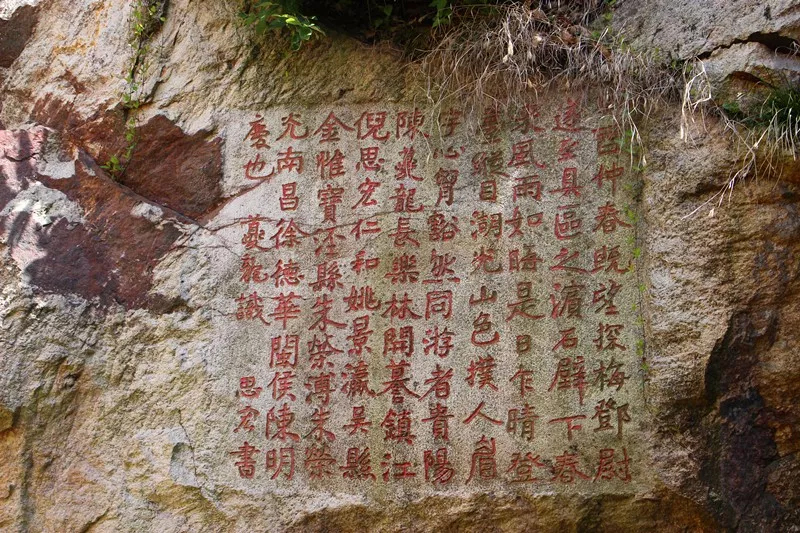 酉仲春既望探梅鄧尉
遂至具區之濵石壁下春
風雨如晦是日乍晴登
縱目湖光山色撲人眉
宇心胷豁然同游者貴陽
陳夔龍長樂林開謩鎮江
倪思宏仁和姚景瀛吳縣
金惟寶涇縣朱榮溥朱榮
光南昌徐德華閩侯陳明
慶也 夔龍識 思宏書